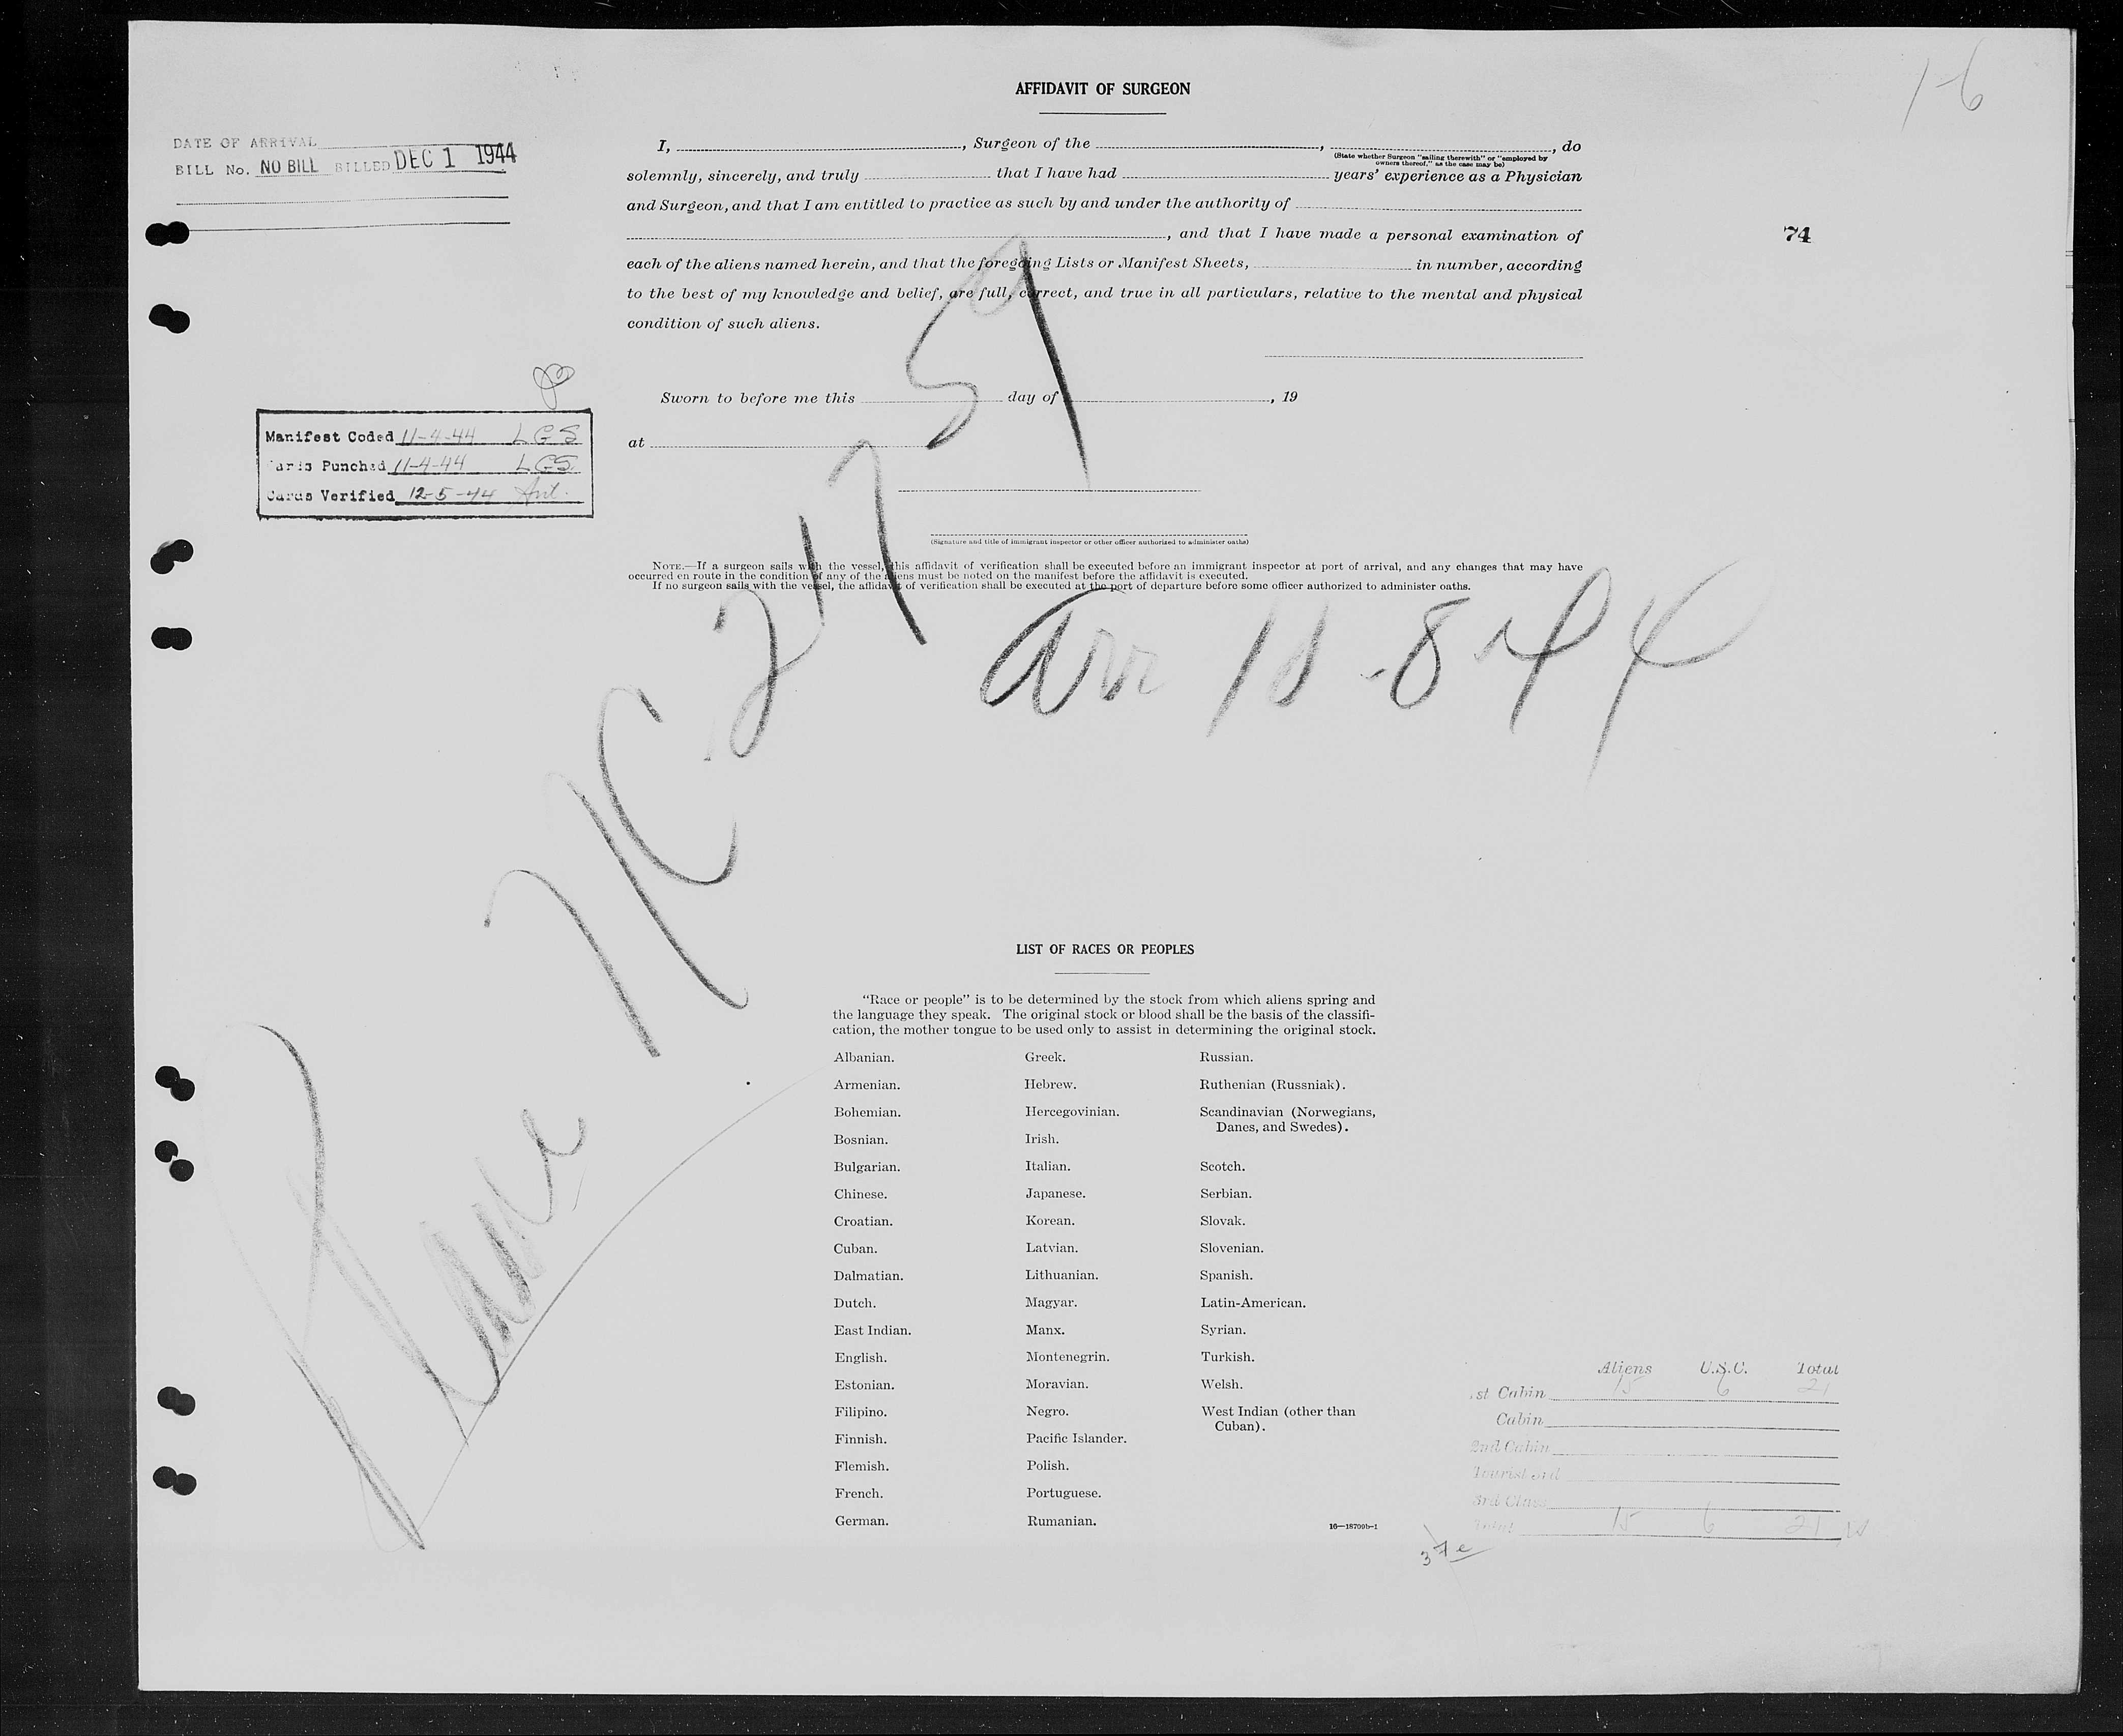 AFFIDAVIT OF SURGEON
1-6
DATE OF ARRIVAL
BILL No. NO BILL BILLED DEC 1 1944
I, , Surgeon of the , , do
(State whether Surgeon "sailing therewith" or "employed by
owners thereof," as the case may be)
solemnly, sincerely, and truly that I have had years' experience as a Physician
and Surgeon, and that I am entitled to practice as such by and under the authority of
, and that I have made a personal examination of
74
each of the aliens named herein, and that the foregoing Lists or Manifest Sheets, in number, according
to the best of my knowledge and belief, are full, correct, and true in all particulars, relative to the mental and physical
condition of such aliens.
Sworn to before me this day of , 19
at
Manifest Coded 11-4-44 LGS
Cards Punched 11-4-44 LGS
Cards Verified 12-5-44
(Signature and title of immigrant inspector or other officer authorized to administer oaths)
NOTE.—If a surgeon sails with the vessel, this affidavit of verification shall be executed before an immigrant inspector at port of arrival, and any changes that may have
occurred en route in the condition of any of the aliens must be noted on the manifest before the affidavit is executed.
If no surgeon sails with the vessel, the affidavit of verification shall be executed at the port of departure before some officer authorized to administer oaths.
Plane NC-21759
Arr
LIST OF RACES OR PEOPLES
"Race or people" is to be determined by the stock from which aliens spring and
the language they speak. The original stock or blood shall be the basis of the classifi-
cation, the mother tongue to be used only to assist in determining the original stock.
Albanian.
Armenian.
Bohemian.
Bosnian.
Bulgarian.
Chinese.
Croatian.
Cuban.
Dalmatian.
Dutch.
East Indian.
English.
Estonian.
Filipino.
Finnish.
Flemish.
French.
German.
Greek.
Hebrew.
Hercegovinian.
Irish.
Italian.
Japanese.
Korean.
Latvian.
Lithuanian.
Magyar.
Manx.
Montenegrin.
Moravian.
Negro.
Pacific Islander.
Polish.
Portuguese.
Rumanian.
Russian.
Ruthenian (Russniak).
Scandinavian (Norwegians,
Danes, and Swedes).
Scotch.
Serbian.
Slovak.
Slovenian.
Spanish.
Latin-American.
Syrian.
Turkish.
Welsh.
West Indian (other than
Cuban).
16—18709b-1
Aliens U.S.C. Total
1st Cabin 15 6 21
Cabin
2nd Cabin
Tourist 3rd
3rd Class
Total 15 6 21